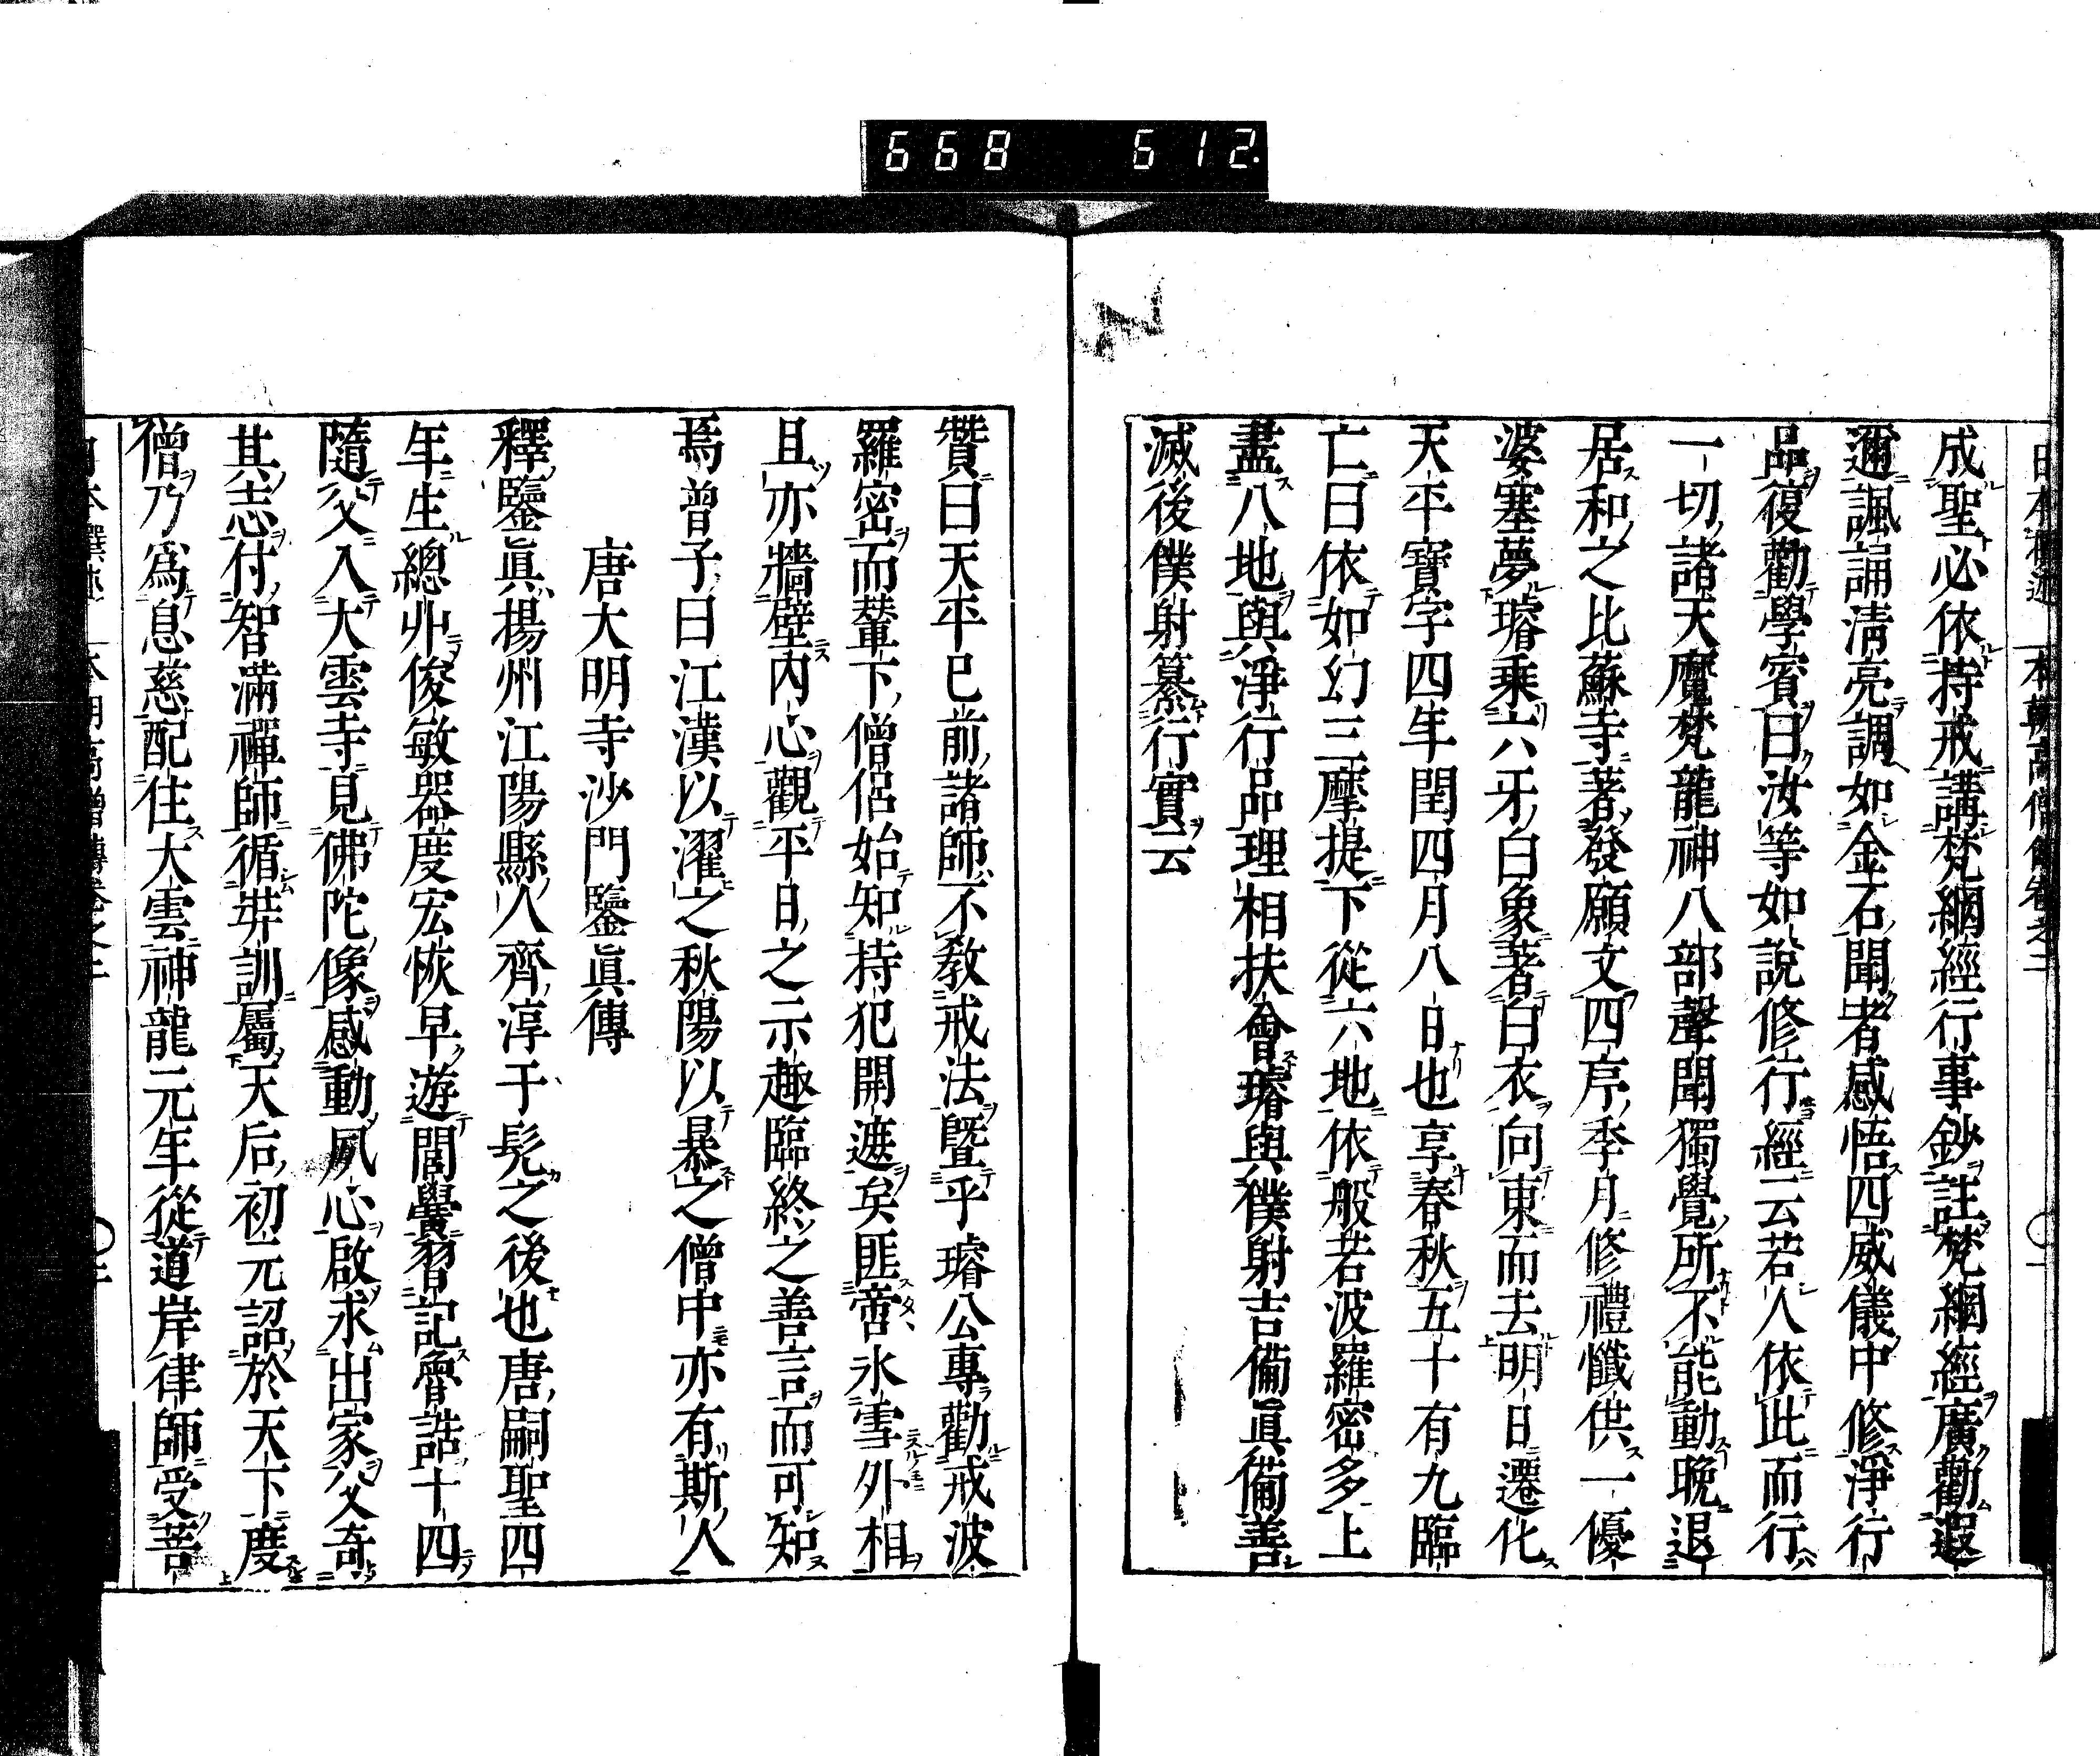 668 612
成聖必依持戒講梵網經行事鈔註梵網經廣勸遐
邇諷誦淸亮調如金石聞者感悟四威儀中修淨行
品復勸學賓曰汝等如說修行經云若人依此而行
一切諸天魔梵龍神八部聲聞獨覺所不能動晚退
居和之比蘇寺著發願文四序季月修禮懺供一優
婆塞夢璿乘六牙白象著白衣向東而去明日遷化
天平寶字四年閏四月八日也享春秋五十有九臨
亡曰依如幻三摩提下從六地依般若波羅密多上
盡八地與淨行品理相扶會璿與僕射吉備眞備善
滅後僕射纂行實云
贊曰天平已前諸師不教戒法曁乎璿公專勸戒波
羅密而輦下僧侶始知持犯開遮矣匪啻氷雪外相
且亦牆壁內心觀平日之示趣臨終之善言而可知
焉曾子曰江漢以濯之秋陽以暴之僧中亦有斯人
唐大明寺沙門鑒眞傳
釋鑒眞揚州江陽縣人齊淳于髡之後也唐嗣聖四
年生總丱俊敏器度宏恢早遊閭黌習記魯誥十四
隨父入大雲寺見佛陀像感動夙心啟求出家父奇
其志付智滿禪師循奘訓屬天后初元詔於天下度
僧乃爲息慈配住大雲神龍元年從道岸律師受菩